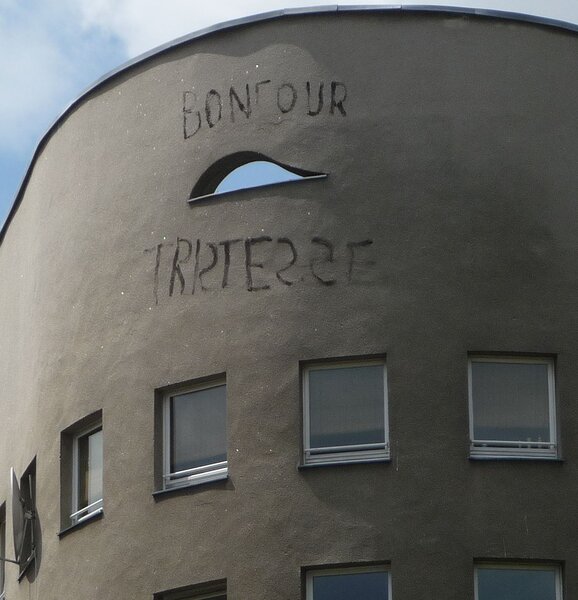 BONJOUR
TRISTESSE